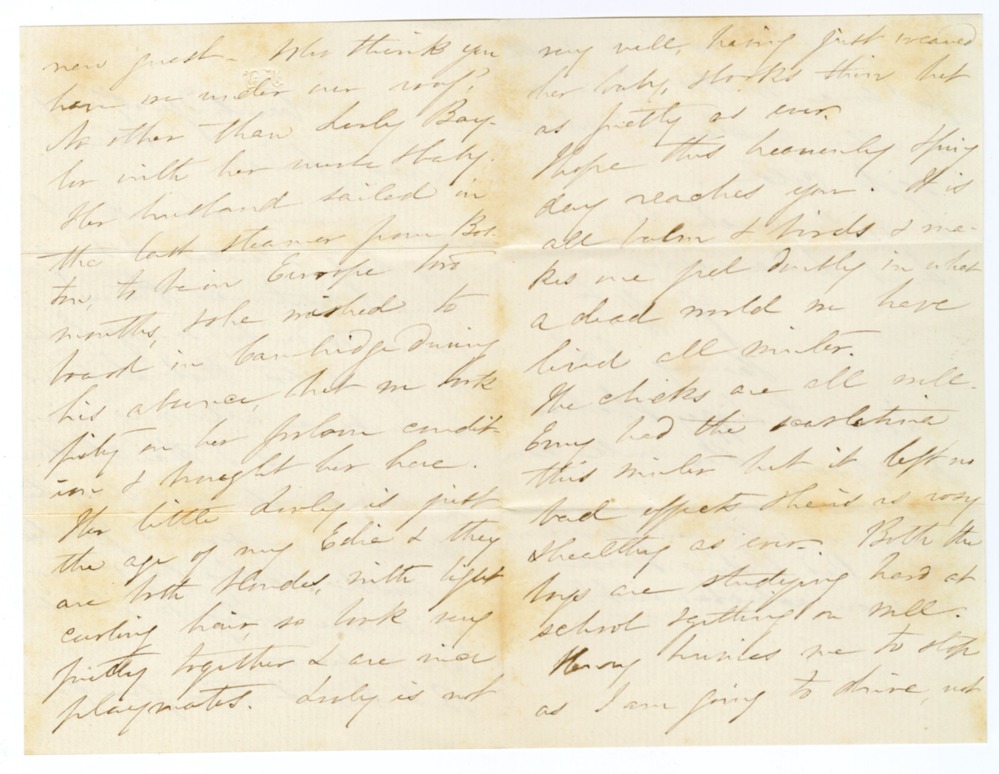 new guest - Who think you
have we under our roof?
No other than Lily Bay-
lor with her nurse & baby.
Her husband sailed in
the last steamer from Bos-
ton, to be in Europe two
months, & she wished to
board in Cambridge during
his absence, but we took
pity on her forlorn condit-
ion & brought her here.
Her little Lily is just
the age of my Edie & they
are both blondes, with light
curling hair, so look very
pretty together & are nice
playmates. Lily is not
very well, having just weaned
her baby, & looks thin but
as pretty as ever.
I hope this heavenly Spring
day reaches you! It is
all balm & birds & ma-
kes one feel doubly in what
a dead world we have
lived all winter.
The chicks are all well.
Emy had the scarlatina
this winter but it left no
bad effects & he is as rosy
& healthy as ever. Both the
boys are studying hard at
school & getting on well.
Henry me to stop
as I am going to drive, not